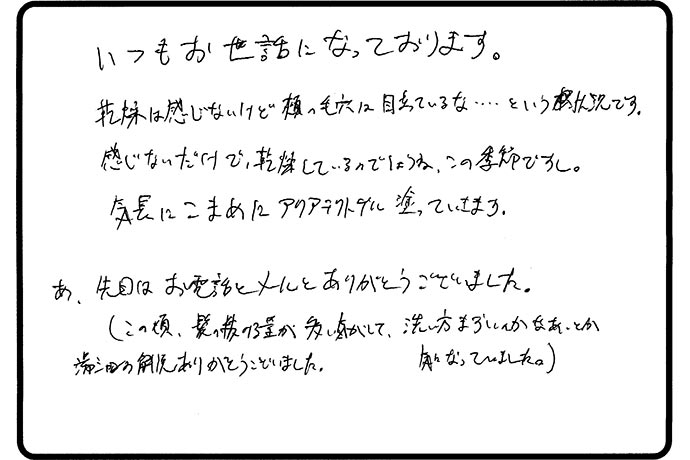 いつもお世話になっております。
乾燥は感じないけど頬の毛穴は目立っているな‥‥という状況です。
感じないだけで、乾燥しているのでしょうね、この季節ですし。
気長にこまめにアクアテクトゲル塗っていきます。
あ、先日はお電話とメールとありがとうございました。
(この頃、髪の抜ける量が多い気がして、洗い方まずいのかなあ、とか
湯シャンの解説ありがとうございました。 気になっていました。)